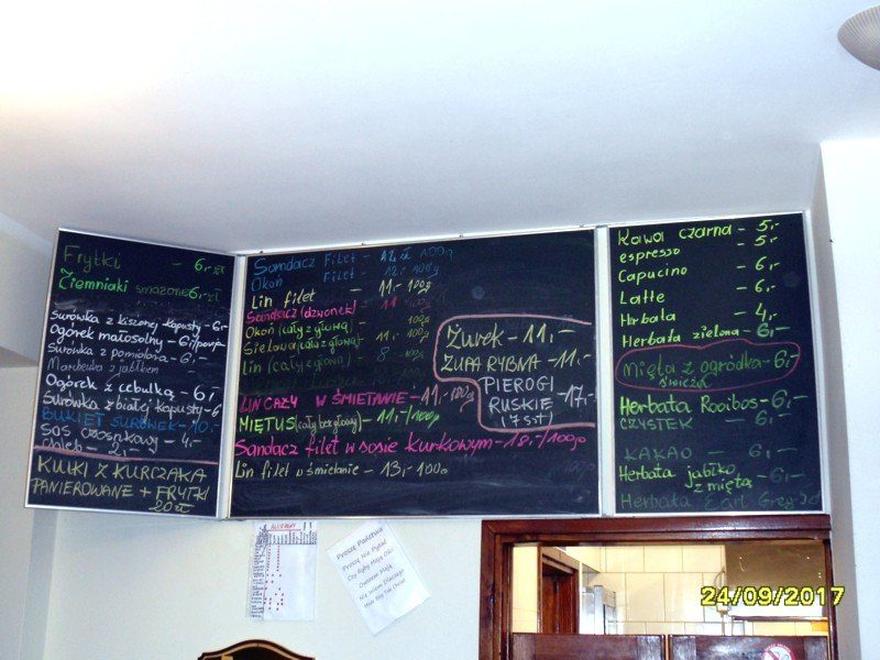 Frytki - 6,- zł
Ziemniaki smażone 6,- zł
Surówka z kiszonej kapusty - 6,-
Ogórek małosolny - 6,-/porcja
Surówka z pomidora - 6,-
Marchewka z jabłkiem
Ogórek z cebulką - 6,-
Surówka z białej kapusty - 6
BUKIET SURÓWEK - 10,-
SOS czosnkowy - 4,-
chleb - 2,-
KULKI Z KURCZAKA
PANIEROWANE + FRYTKI
20 zł
Sandacz Filet - 12,- zł 100g
Okoń Filet - 12,- 100g
Lin filet - 11,- 100g
Sandacz (dzwonek) - 11 100g
Okoń (cały z głową) - 100g
Sielawa (cała z głową) - 100g
Lin (cały z głową) - 8 100g
LIN CAŁY W ŚMIETANIE - 11,- 100g
MIĘTUS (cały bez głowy) - 11,-/100g
Sandacz filet w sosie kurkowym - 18,-/100g
Lin filet w śmietanie - 13,- 100g
Żurek - 11,-
ZUPA RYBNA - 11,-
PIEROGI
RUSKIE - 17,-
(7 szt)
Kawa czarna - 5,-
espresso - 5,-
Capucino - 6,-
Latte - 6,-
Hrbata - 4,-
Herbata zielona - 6,-
Mięta z ogródka - 6,-
świeża
Herbata Rooibos - 6,-
CZYSTEK - 6,-
KAKAO - 6,-
Herbata jabłko - 6,-
z miętą
Herbata Earl Grey
Proszę Państwa
Proszę Nie Pytać
Czy Ryby Mają Ości
Owszem Mają
24/09/2017